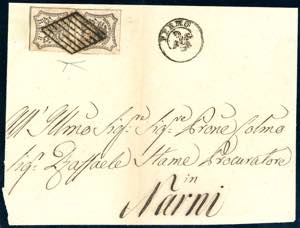 FERMO
All' Illmo Sigre Sigre Prone Colmo
Sigr Raffaele Stame Procuratore
in
Narni